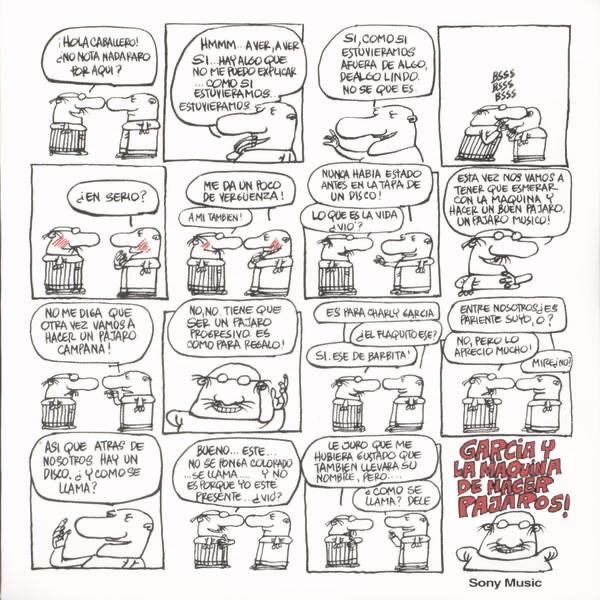 ¡HOLA CABALLERO!
¿NO NOTA NADA RARO
POR AQUI?
HMMM... A VER, A VER
SI... HAY ALGO QUE
NO ME PUEDO EXPLICAR
... COMO SI
ESTUVIERAMOS...
ESTUVIERAMOS
SI, COMO SI
ESTUVIERAMOS
AFUERA DE ALGO,
DE ALGO LINDO.
NO SE QUE ES.
BSSS
BSSS
BSSS
¿EN SERIO?
ME DA UN POCO
DE VERGÜENZA!
A MI TAMBIEN!
NUNCA HABIA ESTADO
ANTES EN LA TAPA DE
UN DISCO!
LO QUE ES LA VIDA
¿VIO?
ESTA VEZ NOS VAMOS A
TENER QUE ESMERAR
CON LA MAQUINA Y
HACER UN BUEN PAJARO.
UN PAJARO MUSICO!
NO ME DIGA QUE
OTRA VEZ VAMOS A
HACER UN PAJARO
CAMPANA!
NO, NO. TIENE QUE
SER UN PAJARO
PROGRESIVO. ES
COMO PARA REGALO!
ES PARA CHARLY GARCIA.
¿EL FLAQUITO ESE?
SI. ESE DE BARBITA!
ENTRE NOSOTROS ¿ES
PARIENTE SUYO, O?
NO, PERO LO
APRECIO MUCHO!
MIRE ¿NO?
ASI QUE ATRAS DE
NOSOTROS HAY UN
DISCO. ¿Y COMO SE
LLAMA?
BUENO... ESTE...
NO SE PONGA COLORADO
...SE LLAMA.... Y NO
ES PORQUE YO ESTE
PRESENTE... ¿VIO?
LE JURO QUE ME
HUBIERA GUSTADO QUE
TAMBIEN LLEVARA SU
NOMBRE, PERO....
¿COMO SE
LLAMA? DELE
GARCIA Y
LA MAQUINA
DE HACER
PAJAROS!
Sony Music